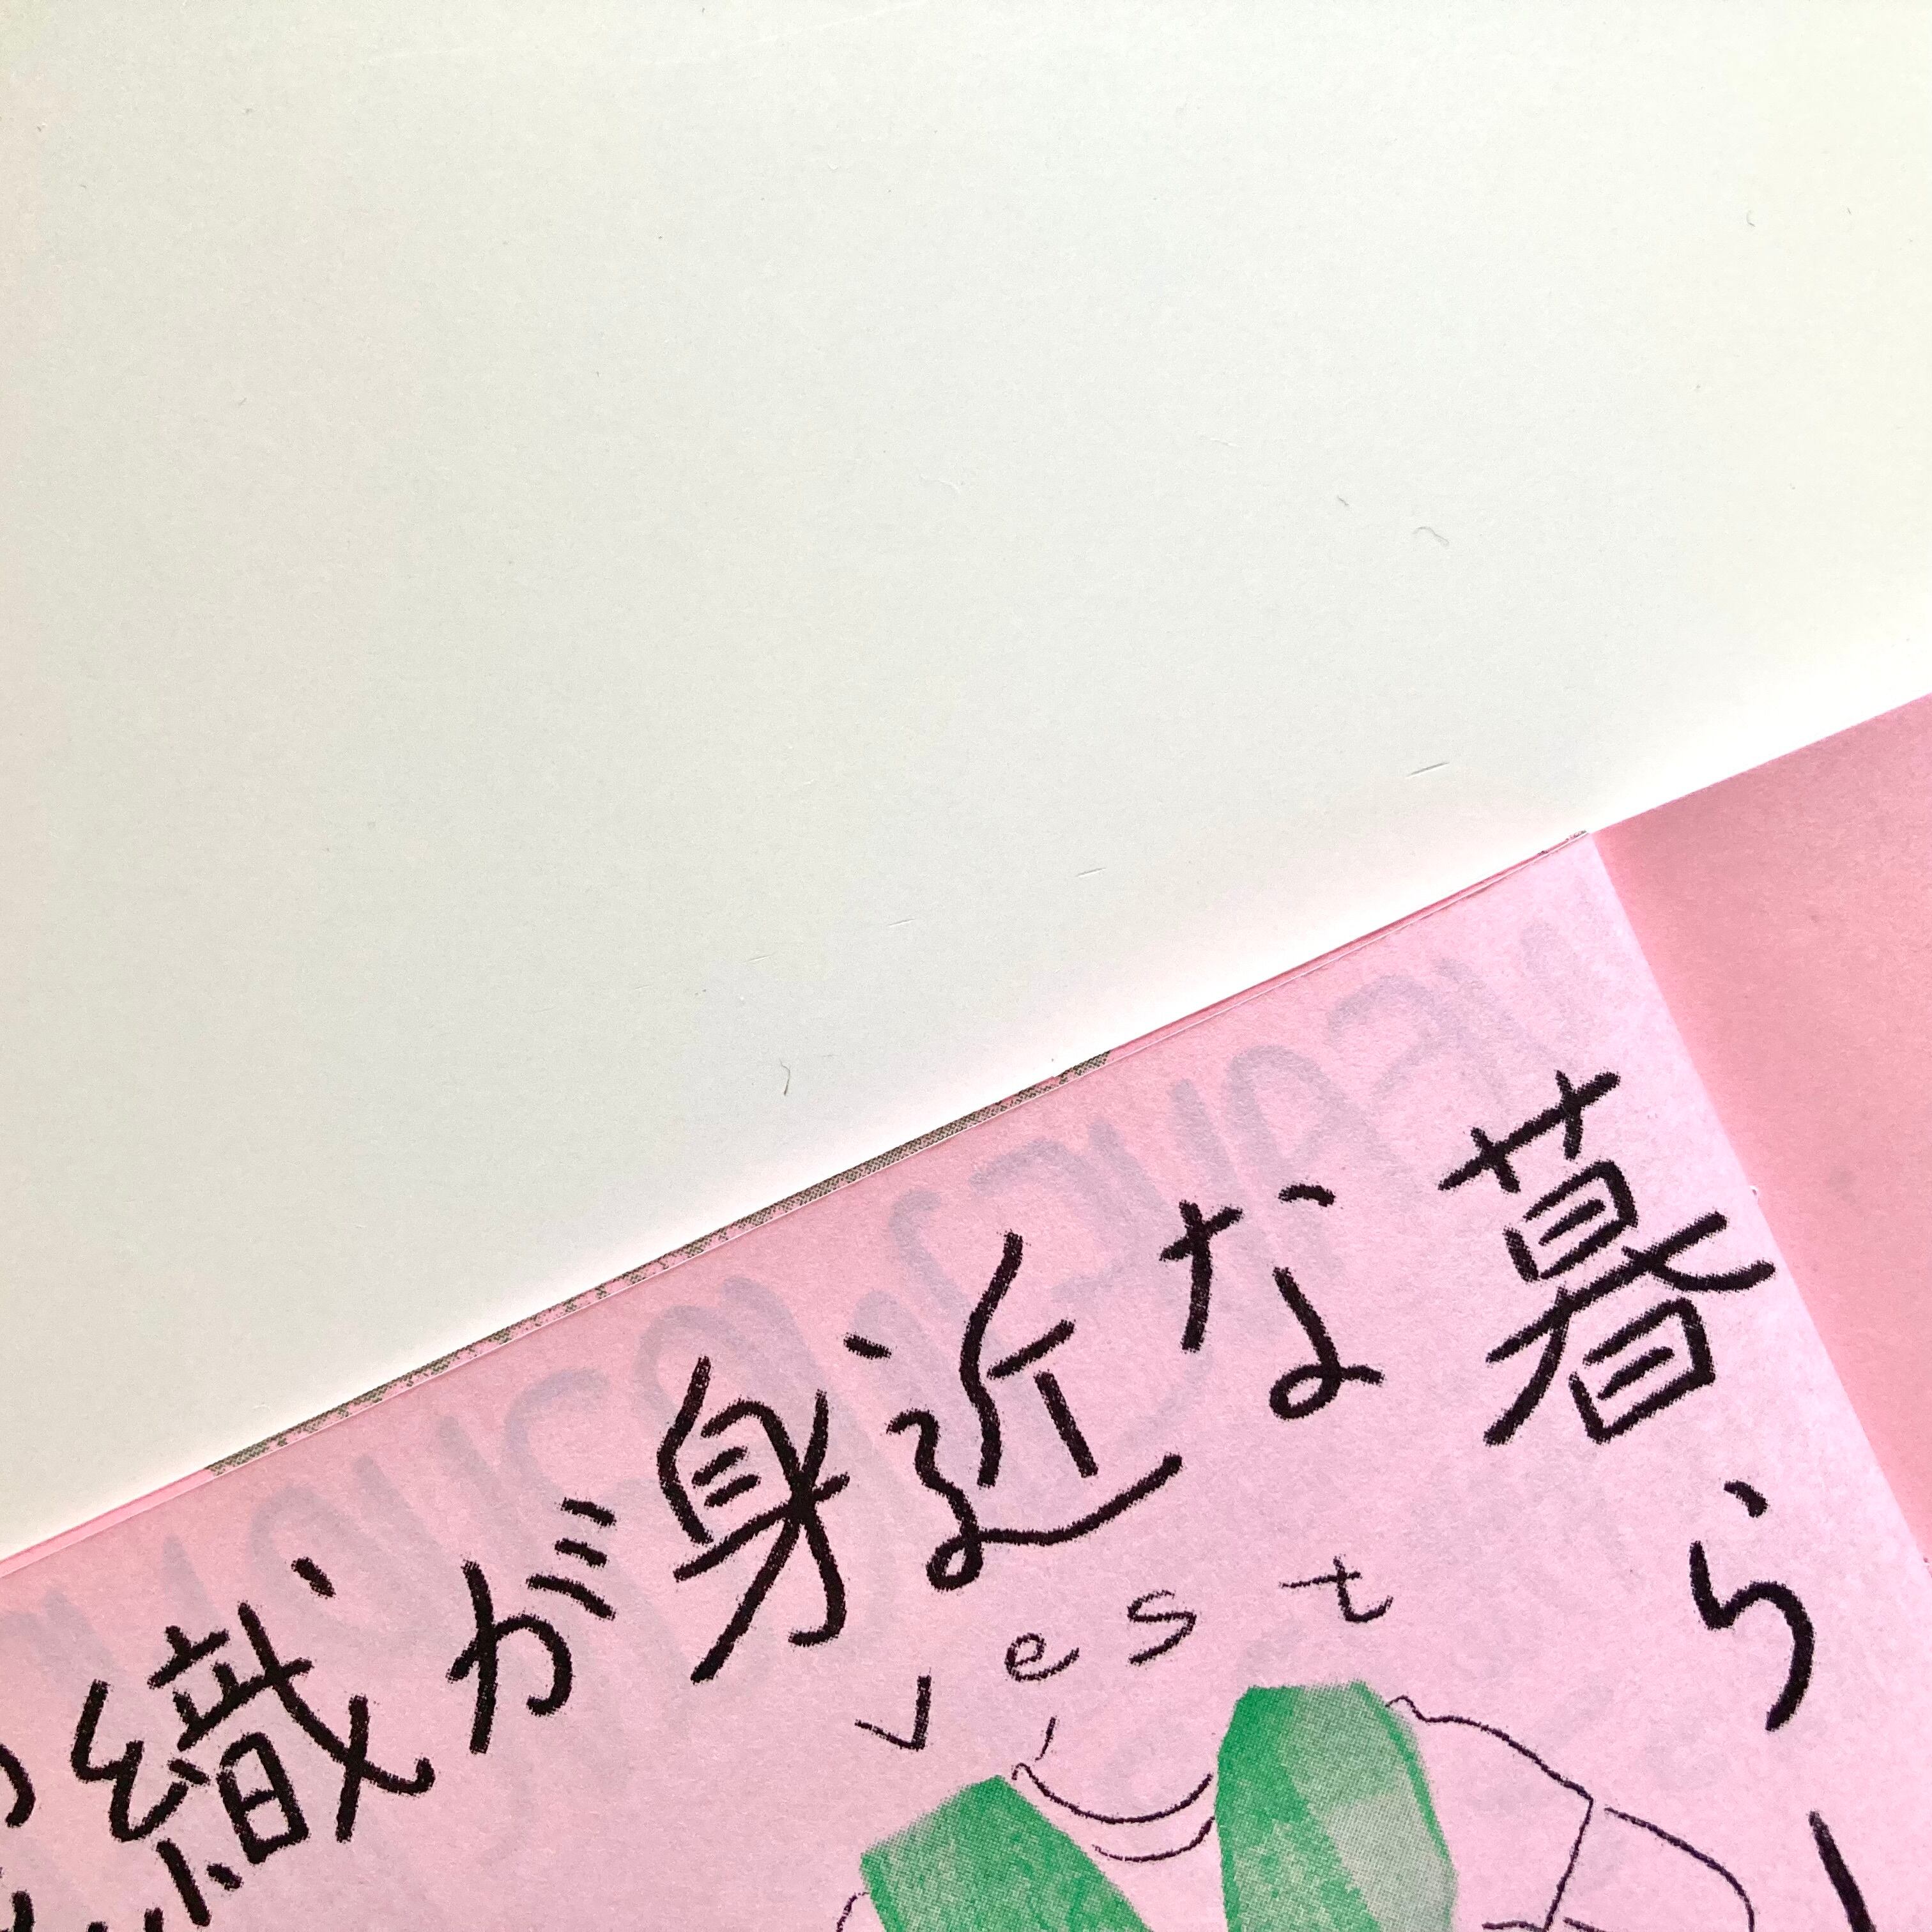 織が身近な暮ら
vest